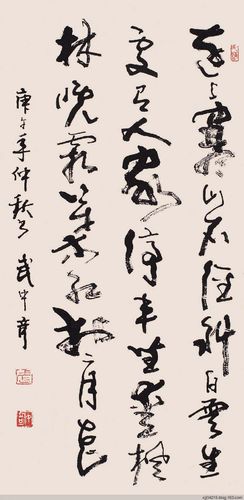 遠上寒山石徑斜白雲生
處有人家停車坐愛楓
林晚霜葉紅於二月花
庚午年仲秋書 武中奇